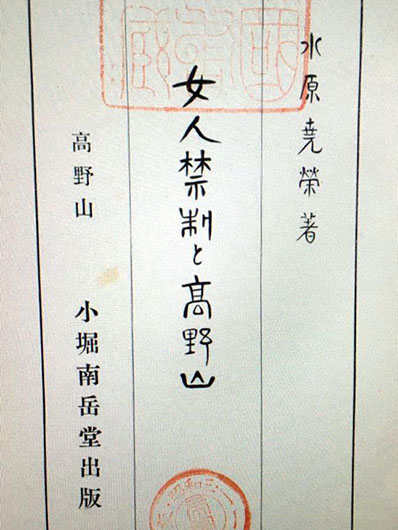 水原堯榮著
女人禁制と髙野山
高野山　小堀南岳堂出版